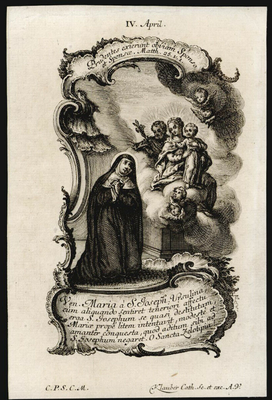 IV. April.
Prudentes exierunt obviam Sponso,
et Sponsæ. Matth. 25. v. 1.
Ven. Maria à S. Joseph Ursulina,
cum aliquando sentiret teneriori affectu
erga S. Josephum se quasi destitutam,
Mariæ propè litem intentavit, modestè et
amanter conquesta, quod aditum sibi ad
S. Josephum negaret. O Sancta
C.P.S.C.M.
Klauber Cath. Sc. et exc. A.V.